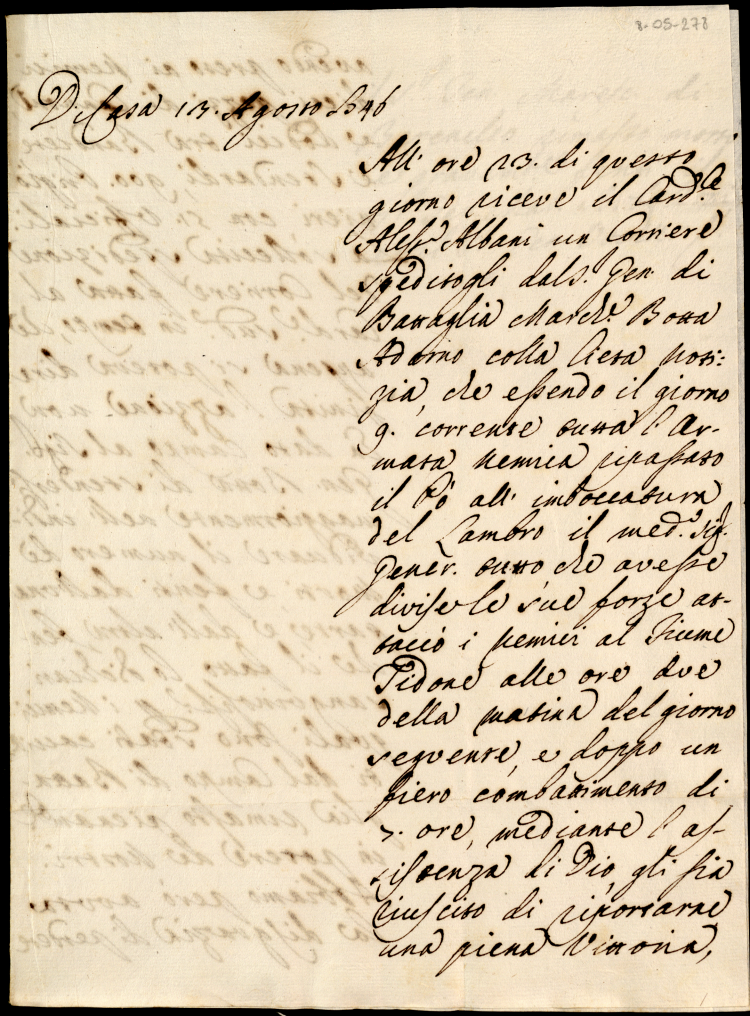 8-05-278
Di Casa 13. Agosto 1746
All' ore 23. di questo
giorno riceve il Card.le
Aless.o Albani un Corriere
speditogli dal S. Gen. di
Battaglia March.e Botta
Adorno colla lieta noti:
zia, che essendo il giorno
9. corrente tutta l'Ar-
mata nemica ripassato
il Pò all' imboccatura
del Lambro il med.o Sig.
Gener. tutto che avesse
divise le sue forze at-
taccò i nemici al Fiume
Tidone alle ore due
della matina del giorno
seguente, e doppo un
fiero combattimento di
7. ore, mediante l'as-
sistenza di Dio, gli sia
riuscito di riportarne
una piena Vittoria,